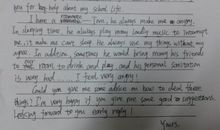 you for big help about my school life.
I have a roommate — Tom, he always make me angry.
In sleeping time, he always play many loudly music to interrupt
me, it make me can't sleep. He always use my things without my
agree. In addition, sometimes he would bring many his friends
to our room to drink and play, and his personal sanitation
is very bad... I feel very angry!
Could you give me some advice on how to deal these
things? I'm very happy if you give me some good suggestions.
Looking forward to you early reply!
Yours,